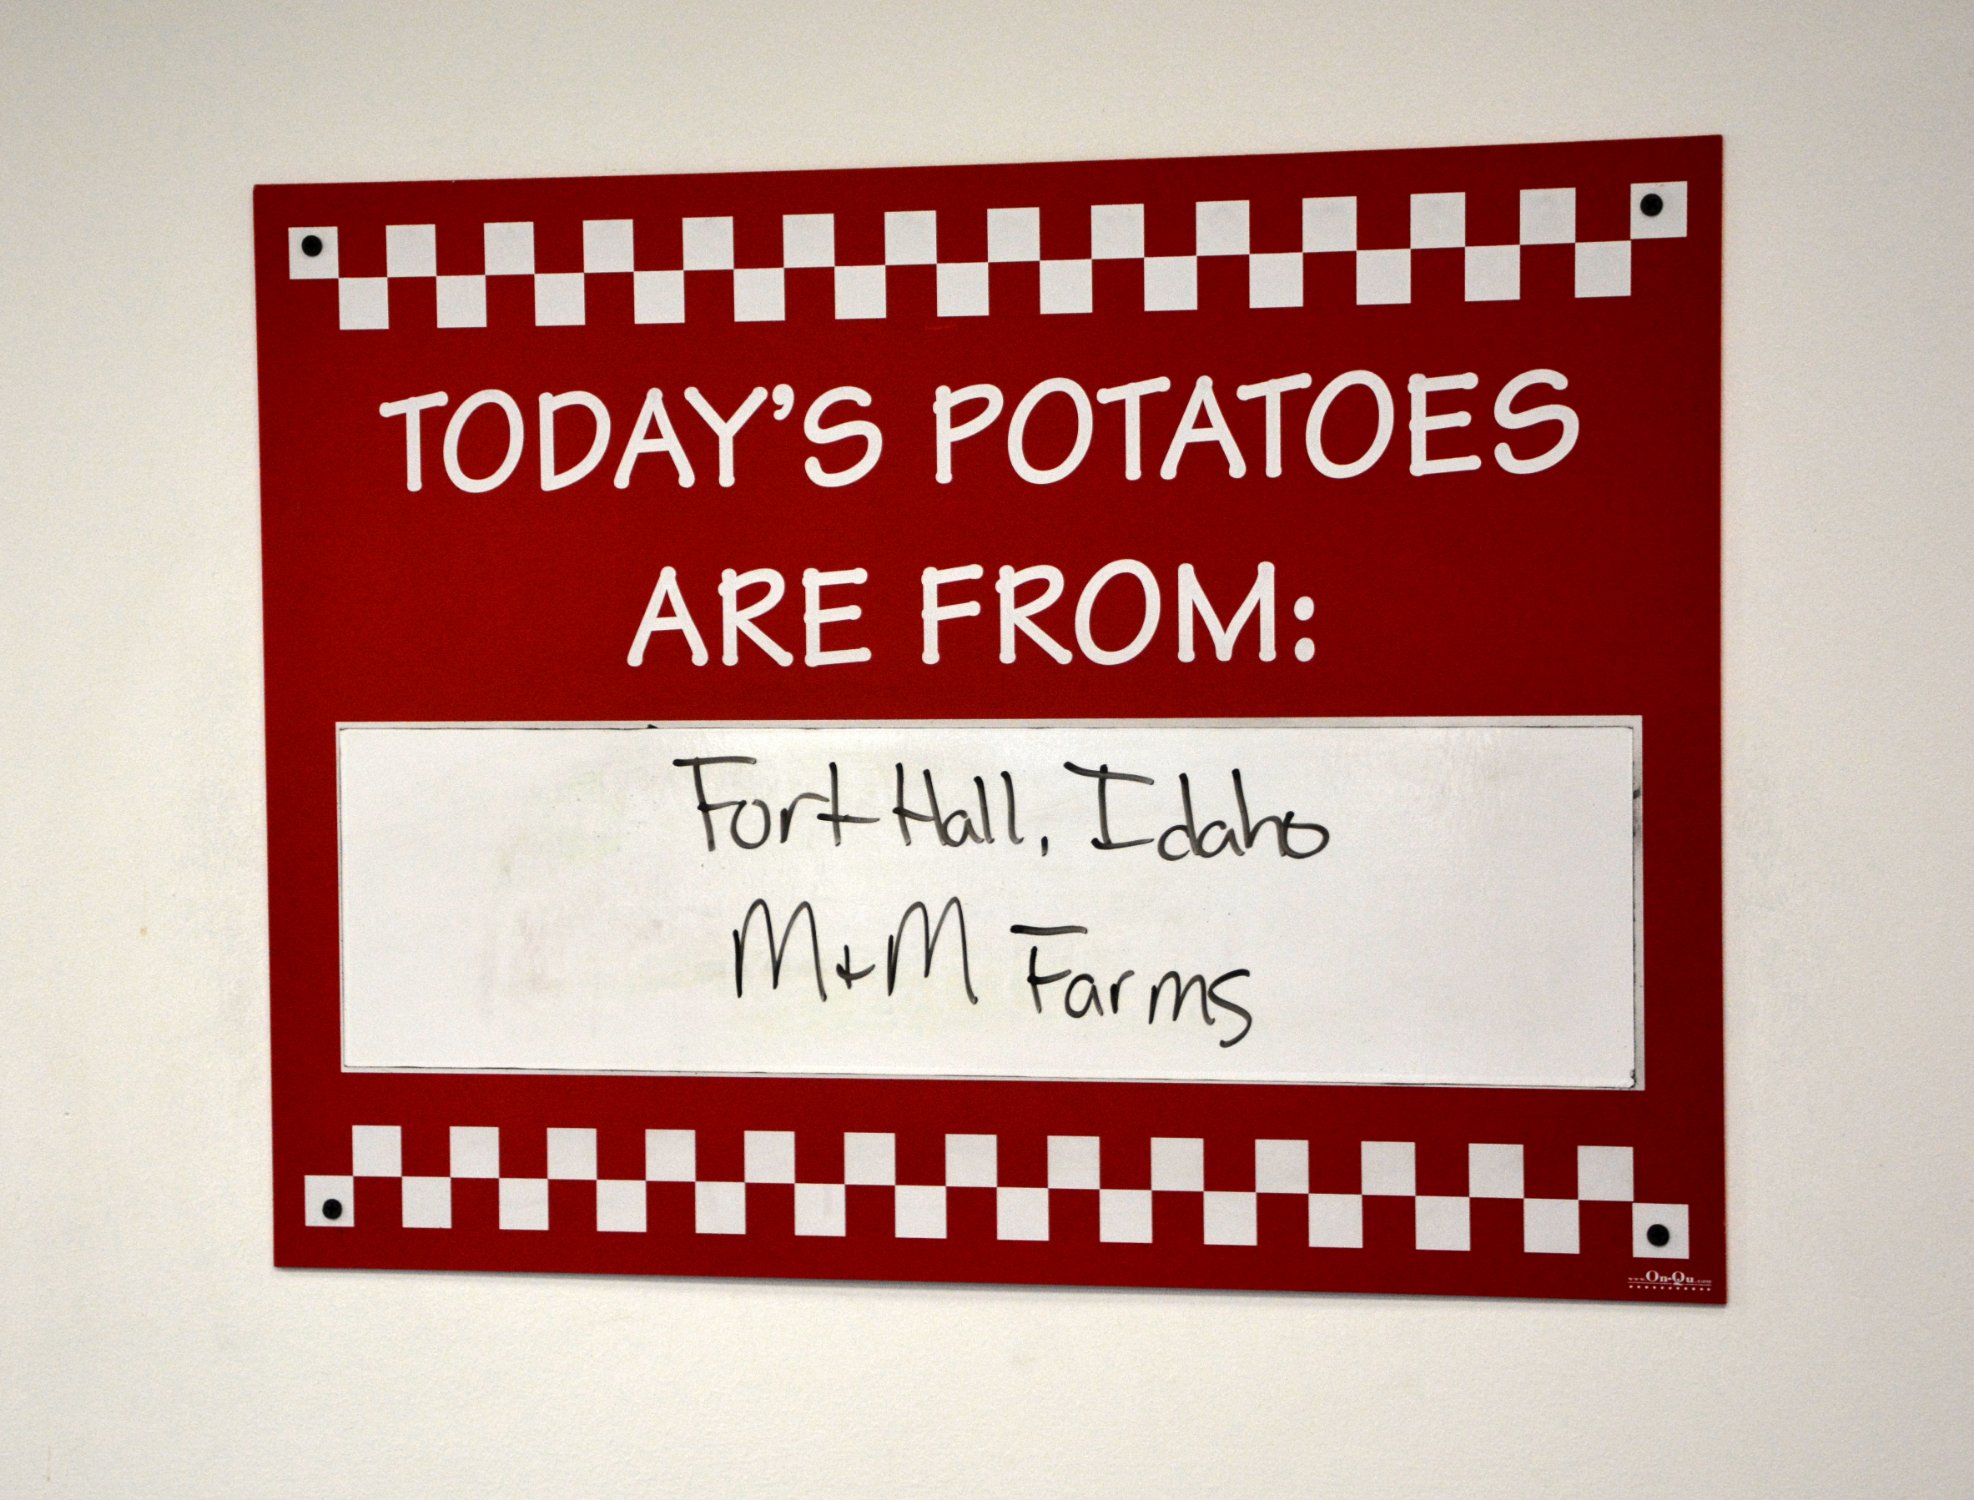 TODAY'S POTATOES
ARE FROM:
Fort Hall, Idaho
M+M Farms
www.On-Qu.com